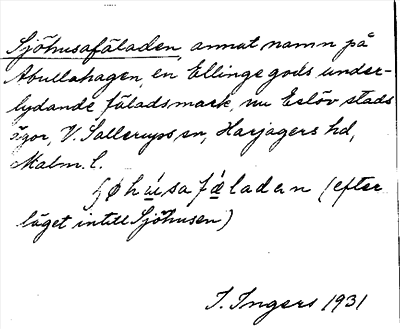 Sjöhusafäladen, annat namn på
Abullahagen, en Ellinge gods under-
lydande fäladsmark, nu Eslöv stads
ägor, V. Sallerups sn, Harjagers hd,
Malm. l.
høhúsafǽladen (efter
läget intill Sjöhusen)
I. Ingers 1931